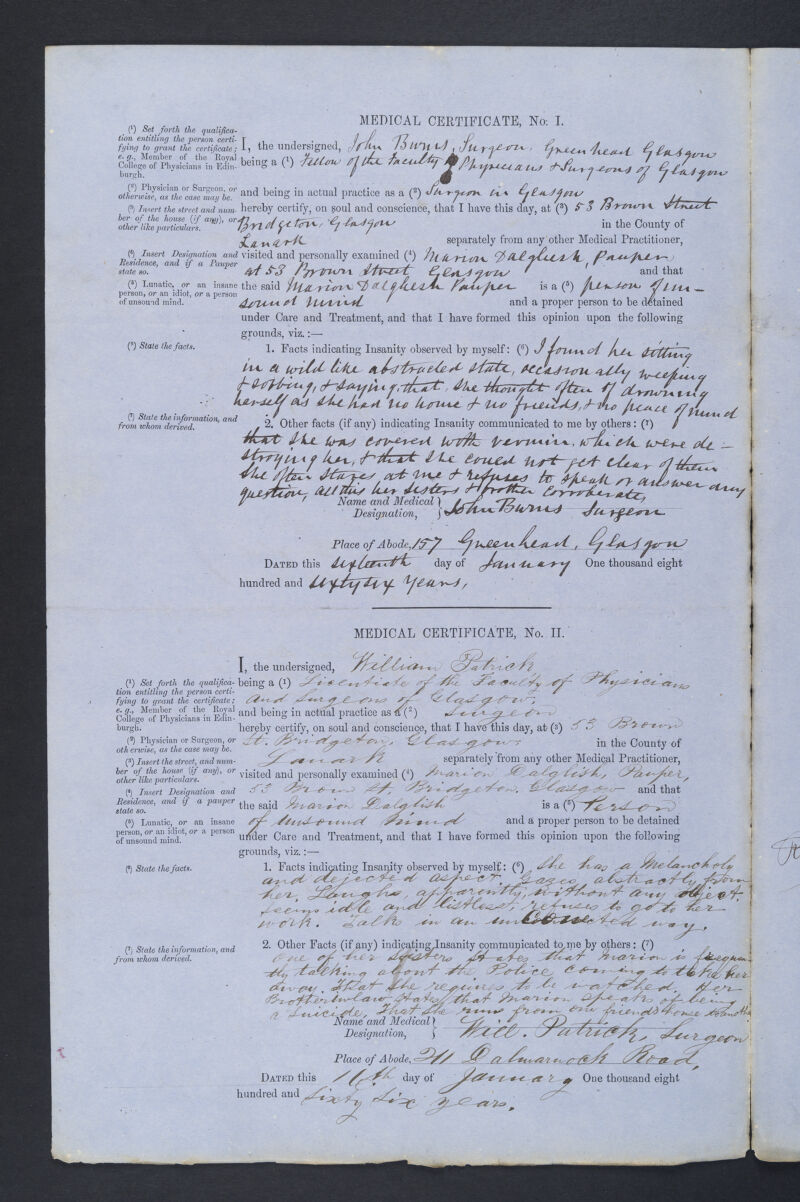 MEDICAL CERTIFICATE, No. I.
(¹) Set forth the qualifica-
tion entitling the person certi-
fying to grant the certificate;
e. g., Member of the Royal
College of Physicians in Edin-
burgh.
I, the undersigned, John Burns, Surgeon, Greenhead Glasgow
being a (¹) Fellow of the Faculty of Physicians & Surgeons of Glasgow
(²) Physician or Surgeon, or
otherwise, as the case may be.
and being in actual practice as a (²) Surgeon in Glasgow
(³) Insert the street and num-
ber of the house (if any), or
other like particulars.
hereby certify, on soul and conscience, that I have this day, at (³) 53 Brown Street
Bridgeton, Glasgow in the County of
Lanark separately from any other Medical Practitioner,
(⁴) Insert Designation and
Residence, and if a Pauper
state so.
visited and personally examined (⁴) Marion Dalgliesh, Pauper
at 53 Brown Street Glasgow and that
(⁵) Lunatic, or an insane
person, or an idiot, or a person
of unsound mind.
the said Marion Dalgliesh Pauper is a (⁵) person of un-
sound mind and a proper person to be detained
under Care and Treatment, and that I have formed this opinion upon the following
grounds, viz.:—
(⁶) State the facts.
1. Facts indicating Insanity observed by myself: (⁶) I found her sitting
in a wild like abstracted state, occasionally weeping
& sobbing, & saying that she thought often of drowning
herself as she had no home & no friends, & no peace of mind
(⁷) State the information, and
from whom derived.
2. Other facts (if any) indicating Insanity communicated to me by others: (⁷)
that she was covered with vermin, which were de-
stroying her, & that she could not get clear of them
She often stares at me & refuses to speak or answer any
question, all this her sisters & brother corroborate,
Name and Medical
Designation, } John Burns Surgeon
Place of Abode, 157 Greenhead, Glasgow
DATED this sixteenth day of January One thousand eight
hundred and sixty six years,
MEDICAL CERTIFICATE, No. II.
I, the undersigned, William Patrick
(¹) Set forth the qualifica-
tion entitling the person certi-
fying to grant the certificate;
e. g., Member of the Royal
College of Physicians in Edin-
burgh.
being a (¹) Licentiate of the Faculty of Physicians
and Surgeons of Glasgow.
and being in actual practice as a (²) Surgeon
(²) Physician or Surgeon, or
otherwise, as the case may be.
hereby certify, on soul and conscience, that I have this day, at (³) 53 Brown
St. Bridgeton, Glasgow in the County of
(³) Insert the street, and num-
ber of the house (if any), or
other like particulars.
Lanark separately from any other Medical Practitioner,
visited and personally examined (⁴) Marion Dalglish, Pauper,
(⁴) Insert Designation and
Residence, and if a pauper
state so.
53 Brown St. Bridgeton, Glasgow and that
the said Marion Dalglish is a (⁵) Person
(⁵) Lunatic, or an insane
person, or an idiot, or a person
of unsound mind.
of Unsound Mind and a proper person to be detained
under Care and Treatment, and that I have formed this opinion upon the following
grounds, viz.:—
(⁶) State the facts.
1. Facts indicating Insanity observed by myself: (⁶) She has a Melancholy
and dejected aspect. Gazes abstractly from
her. Laughs, apparently, without any object.
Seems idle and listless; refuses to go to her
work. Talks in an unconnected way.
(⁷) State the information, and
from whom derived.
2. Other Facts (if any) indicating Insanity communicated to me by others: (⁷)
One of her Sisters states that Marion is frequen
tly talking about the Police coming to take her
away. That she requires to be watched. Her
Brotherinlaw states that Marion speaks of being
a Suicide, That she runs from one friends house to another
Name and Medical
Designation, } Will. Patrick, Surgeon
Place of Abode, 211 Dalmarnock Road,
DATED this 16th day of January One thousand eight
hundred and sixty six years.